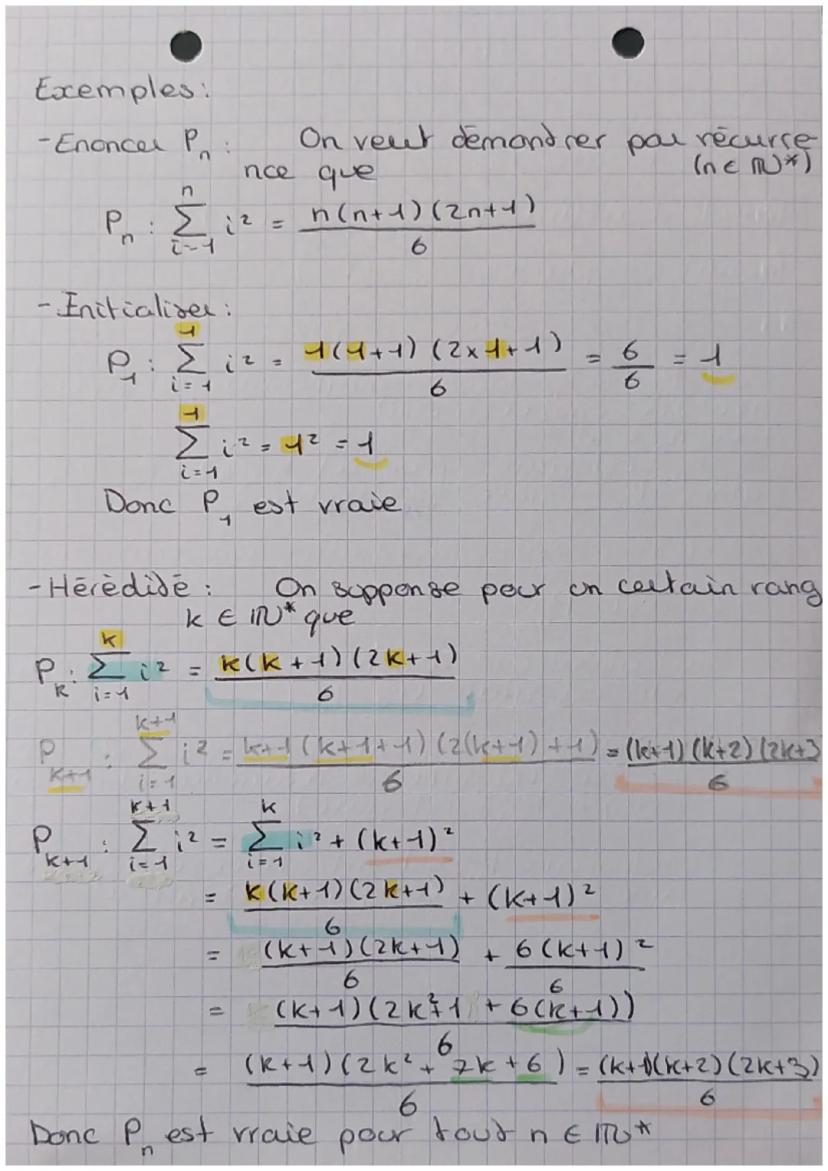 Exemples:
- Enoncer Pₙ: On veut démondrer par récurre
nce que (n ∈ ℕ*)
Pₙ : ∑_{i=1}^{n} i² = n(n+1)(2n+1) / 6
- Initialiser:
P₁ : ∑_{i=1}^{1} i² = 1(1+1)(2×1+1) / 6 = 6/6 = 1
∑_{i=1}^{1} i² = 1² = 1
Donc P₁ est vraie
- Hérédidé : On suppense pour un certain rang
k ∈ ℕ* que
P_k : ∑_{i=1}^{k} i² = k(k+1)(2k+1) / 6
P_{k+1} : ∑_{i=1}^{k+1} i² = k+1(k+1+1)(2(k+1)+1) / 6 = (k+1)(k+2)(2k+3 / 6
P_{k+1} : ∑_{i=1}^{k+1} i² = ∑_{i=1}^{k} i² + (k+1)²
= k(k+1)(2k+1) / 6 + (k+1)²
= (k+1)(2k+1) / 6 + 6(k+1)² / 6
= (k+1)(2k²+1 + 6(k+1)) / 6
= (k+1)(2k² + 7k + 6) / 6 = (k+1)(k+2)(2k+3) / 6
Donc Pₙ est vraie pour tout n ∈ ℕ*